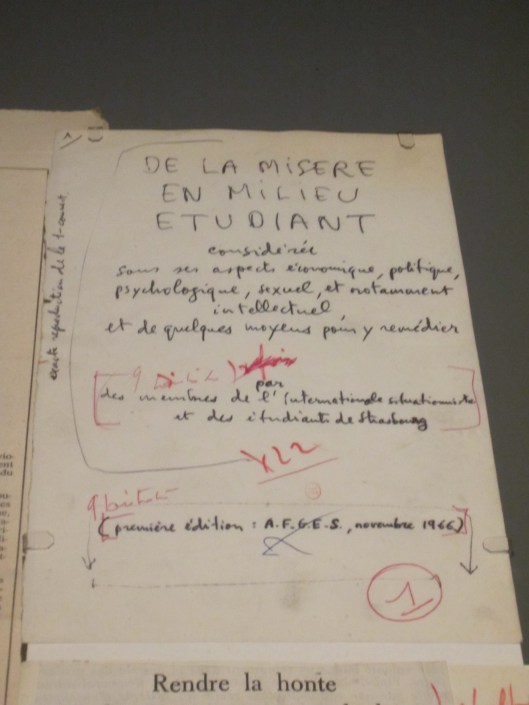 1
DE LA MISERE
EN MILIEU
ETUDIANT
considérée
sous ses aspects économique, politique,
psychologique, sexuel, et notamment
intellectuel,
et de quelques moyens pour y remédier
par
des membres de l'Internationale situationniste
et des étudiants de Strasbourg
X22
(première édition : A.F.G.E.S., novembre 1966)
1
Rendre la honte